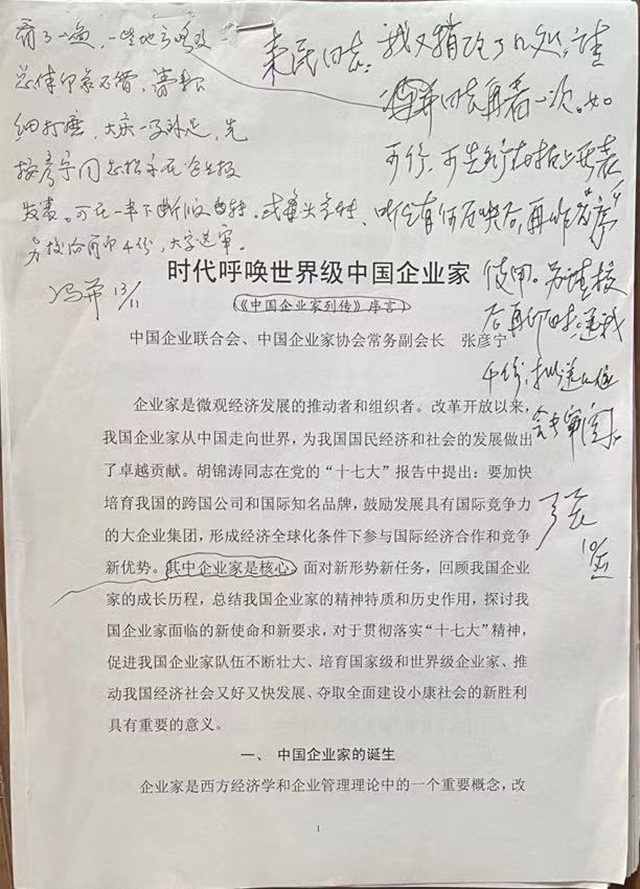 看了一遍，一些地方修改
总体印象不错，
细打磨，大庆一
按彦宁同志指示在企业报
发表。可在一半下断版
另校后再印4份，大字送审。
冯并 13/11
来民同志：我又稍改了几处，请
冯并同志再看一次。如
可行，可先行在报上发表，
听住有何反映后，再作“序”
使用。另请校
后再印时，送我
十份，拟送几位
会长审阅。
彦宁
时代呼唤世界级中国企业家
（《中国企业家列传》序言）
中国企业联合会、中国企业家协会常务副会长 张彦宁
企业家是微观经济发展的推动者和组织者。改革开放以来，
我国企业家从中国走向世界，为我国国民经济和社会的发展做出
了卓越贡献。胡锦涛同志在党的“十七大”报告中提出：要加快
培育我国的跨国公司和国际知名品牌，鼓励发展具有国际竞争力
的大企业集团，形成经济全球化条件下参与国际经济合作和竞争
新优势。其中企业家是核心。面对新形势新任务，回顾我国企业
家的成长历程，总结我国企业家的精神特质和历史作用，探讨我
国企业家面临的新使命和新要求，对于贯彻落实“十七大”精神，
促进我国企业家队伍不断壮大、培育国家级和世界级企业家、推
动我国经济社会又好又快发展、夺取全面建设小康社会的新胜利
具有重要的意义。
一、中国企业家的诞生
企业家是西方经济学和企业管理理论中的一个重要概念，改
1